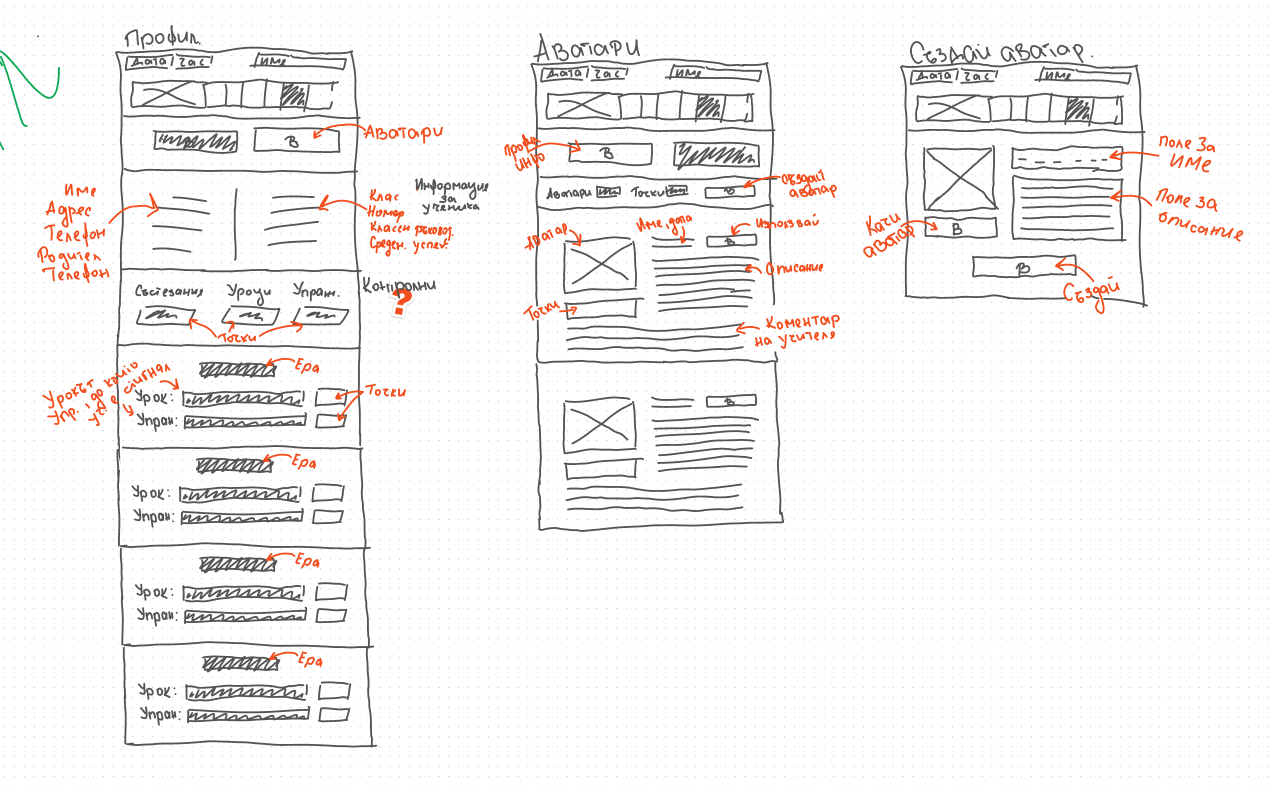 Профил
Дата Час Име
В
Аватари
Име
Адрес
Телефон
Родител
Телефон
Клас
Номер
Класен ръковод.
Среден. успех.
Информация
за
ученика
Състезания Уроци Упраж.
Контролни
?
Точки
Ера
Урок:
Упраж:
Точки
Ера
Урок:
Упраж:
Ера
Урок:
Упраж:
Ера
Урок:
Упраж:
Аватари
Дата Час Име
В
Аватари Точки В
Създай
аватар
Аватар
Име, дата
В
Използвай
Описание
Точки
Коментар
на учителя
В
Създай аватар.
Дата Час Име
Поле за
Име
Поле за
описание
Качи
аватар
В
В
Създай